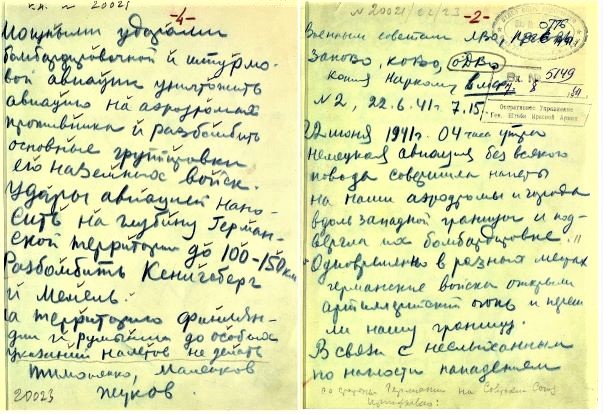 к.н. № 20021
-4-
Мощными ударами
бомбардировочной и штурмо-
вой авиации уничтожить
авиацию на аэродромах
противника и разбомбить
основные группировки
его наземных войск.
Удары авиацией нано-
сить на глубину Герман-
ской территории до 100-150 км
Разбомбить Кенигсберг
и Мемель.
На территорию Финлян-
дии и Румынии до особых
указаний налетов не делать
Тимошенко, Маленков
Жуков.
20023
№20021/
-2-
Военным советам ЛВО,
ЗапОВО, КОВО, ОДВО,
Копия Наркому В.М.Ф.
Вх. № 5149
Оперативное Управление
Ген. Штаба Красной Армии
N2, 22.6.41 г. 7.15
22 июня 1941 г. 04 часа утра
немецкая авиация без всякого
повода совершила налеты
на наши аэродромы и города
вдоль западной границы и под-
вергла их бомбардировке.
Одновременно в разных местах
германские войска открыли
артиллерийский огонь и переш-
ли нашу границу.
В связи с неслыханным
по наглости нападением
со стороны Германии на Советский Союз